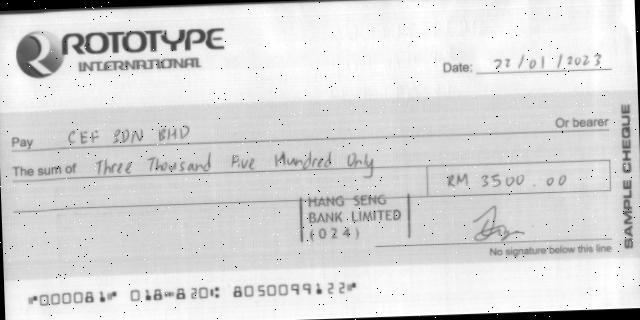 ROTOTYPE
INTERNATIONAL
Date: 22/01/2023
Pay CEF SDN BHD Or bearer
The sum of Three Thousand Five Hundred Only
RM 3500.00
HANG SENG
BANK LIMITED
(024)
No signature below this line
SAMPLE CHEQUE
⑈000081⑈ 018⑉820⑆ 8050099122⑈